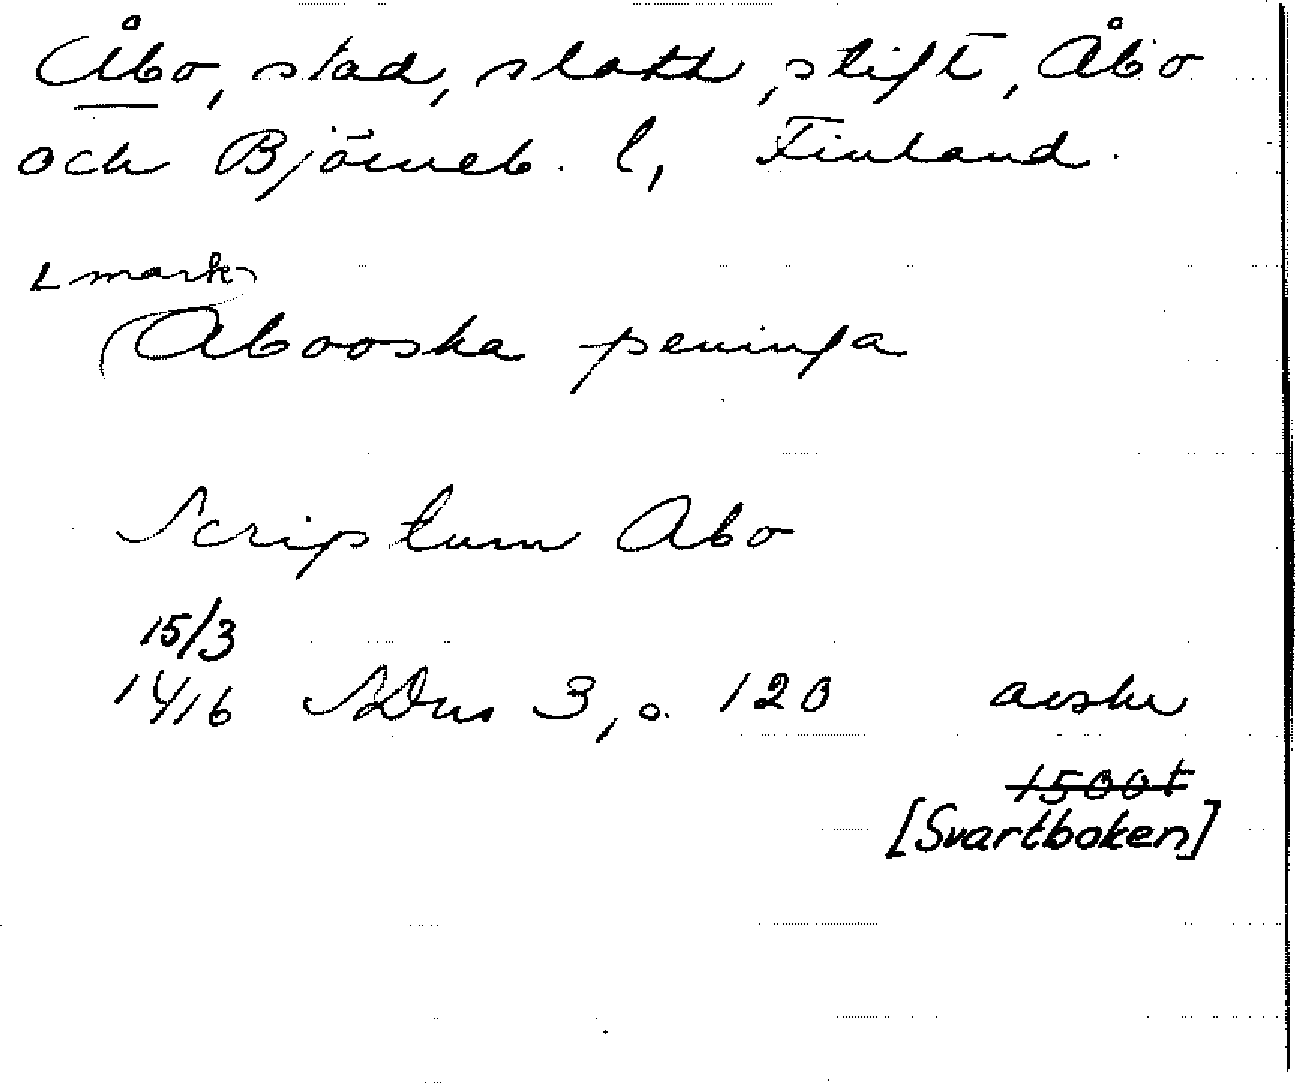 Åbo, stad, slott, stift, Åbo
och Björneb. l, Finland.
L mark
Abooska peninga
Scriptum Abo
15/3
1416 SDns 3, s. 120 avskr
1500t
[Svartboken]